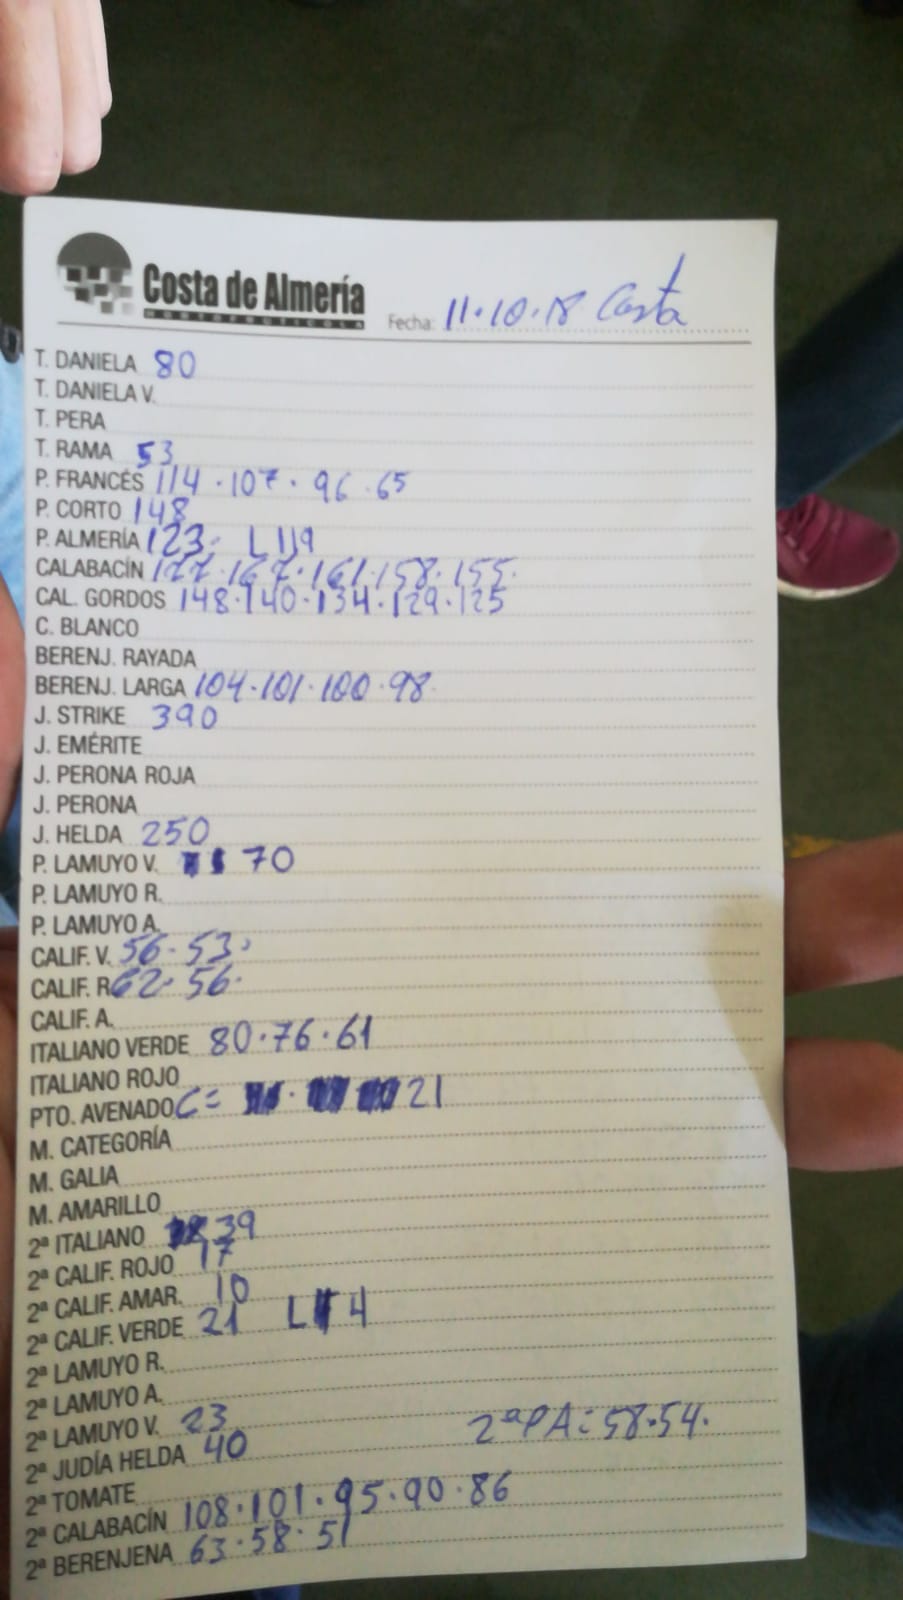 Costa de Almería
HORTOFRUTÍCOLA
Fecha: 11·10·18 Costa
T. DANIELA 80
T. DANIELA V.
T. PERA
T. RAMA 53
P. FRANCÉS 114·107·96·65
P. CORTO 148
P. ALMERÍA 123· L 119
CALABACÍN 177·167·161·158·155·
CAL. GORDOS 148·140·134·129·125
C. BLANCO
BERENJ. RAYADA
BERENJ. LARGA 104·101·100·98·
J. STRIKE 390
J. EMÉRITE
J. PERONA ROJA
J. PERONA
J. HELDA 250
P. LAMUYO V. 70
P. LAMUYO R.
P. LAMUYO A.
CALIF. V. 56·53·
CALIF. R. 62·56·
CALIF. A.
ITALIANO VERDE 80·76·61
ITALIANO ROJO
PTO. AVENADO C= 21
M. CATEGORÍA
M. GALIA
M. AMARILLO
2ª ITALIANO 39
2ª CALIF. ROJO 17
2ª CALIF. AMAR. 10
2ª CALIF. VERDE 21 L 4
2ª LAMUYO R.
2ª LAMUYO A.
2ª LAMUYO V. 23 2ªPA=58·54·
2ª JUDÍA HELDA 40
2ª TOMATE
2ª CALABACÍN 108·101·95·90·86
2ª BERENJENA 63·58·51